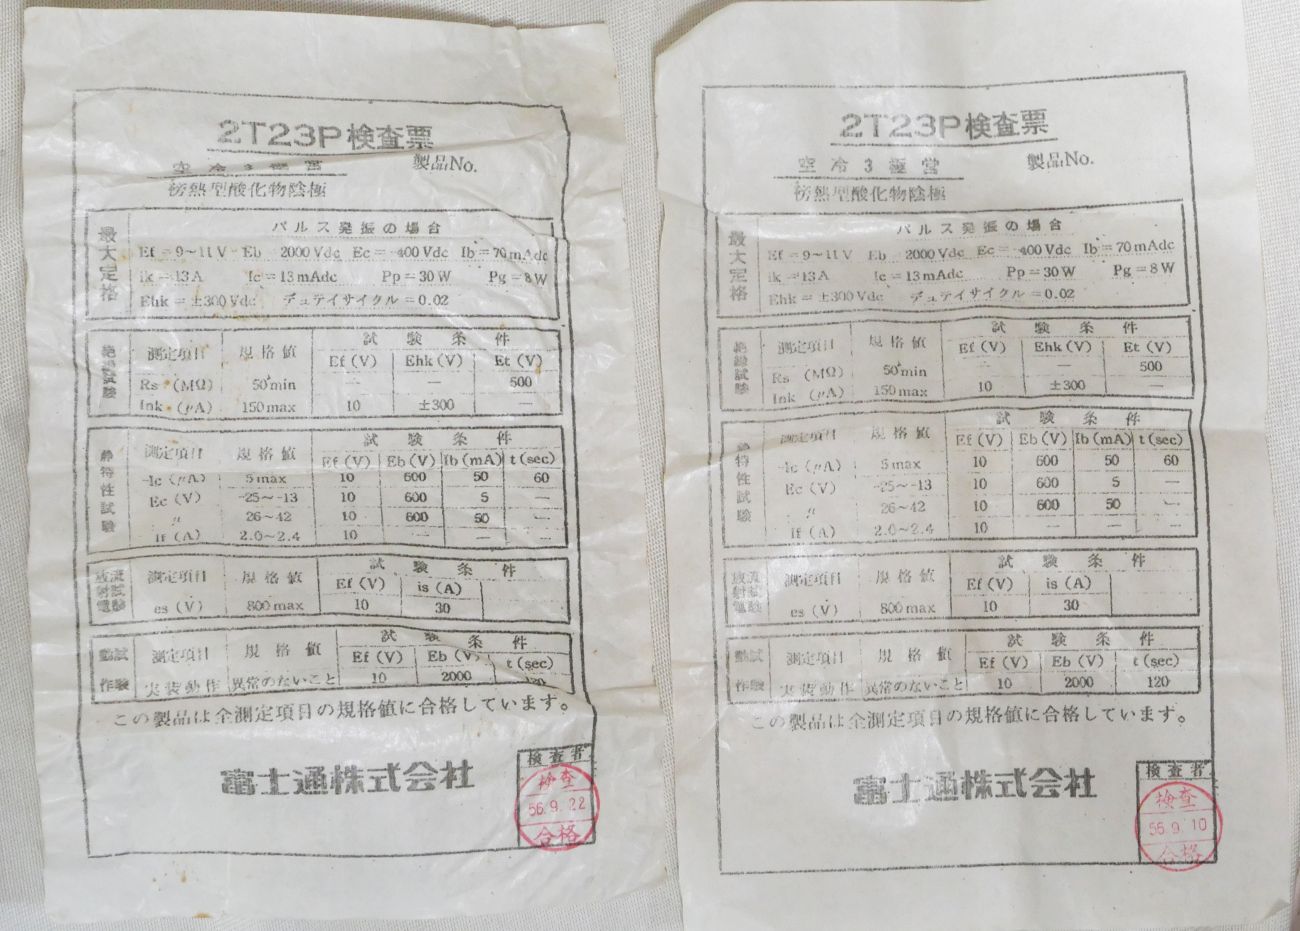 2T23P検査票
空冷3極管 製品No.
傍熱型酸化物陰極
最大定格
パルス発振の場合
Ef=9~11V Eb 2000Vdc Ec=-400Vdc Ib=70mAdc
ik=13A Ic=13mAdc Pp=30W Pg=8W
Ehk=±300Vdc デュテイサイクル=0.02
絶縁試験
測定項目 規格値 試験条件
Ef(V) Ehk(V) Et(V)
Rs (MΩ) 50min — — 500
Ihk (μA) 150max 10 ±300 —
静特性試験
測定項目 規格値 試験条件
Ef(V) Eb(V) Ib(mA) t(sec)
-Ic(μA) 5max 10 600 50 60
Ec(V) -25~-13 10 600 5 —
μ 26~42 10 600 50 —
If(A) 2.0~2.4 10 — — —
放射電流試験
測定項目 規格値 試験条件
Ef(V) is(A)
es(V) 800max 10 30
動作試験
測定項目 規格値 試験条件
Ef(V) Eb(V) t(sec)
実装動作 異常のないこと 10 2000 120
この製品は全測定項目の規格値に合格しています。
富士通株式会社
検査者
検査
56.9.22
合格
2T23P検査票
空冷3極管 製品No.
傍熱型酸化物陰極
最大定格
パルス発振の場合
Ef=9~11V Eb 2000Vdc Ec=-400Vdc Ib=70mAdc
ik=13A Ic=13mAdc Pp=30W Pg=8W
Ehk=±300Vdc デュテイサイクル=0.02
絶縁試験
測定項目 規格値 試験条件
Ef(V) Ehk(V) Et(V)
Rs (MΩ) 50min — — 500
Ihk (μA) 150max 10 ±300 —
静特性試験
測定項目 規格値 試験条件
Ef(V) Eb(V) Ib(mA) t(sec)
-Ic(μA) 5max 10 600 50 60
Ec(V) -25~-13 10 600 5 —
μ 26~42 10 600 50 —
If(A) 2.0~2.4 10 — — —
放射電流試験
測定項目 規格値 試験条件
Ef(V) is(A)
es(V) 800max 10 30
動作試験
測定項目 規格値 試験条件
Ef(V) Eb(V) t(sec)
実装動作 異常のないこと 10 2000 120
この製品は全測定項目の規格値に合格しています。
富士通株式会社
検査者
検査
56.9.10
合格